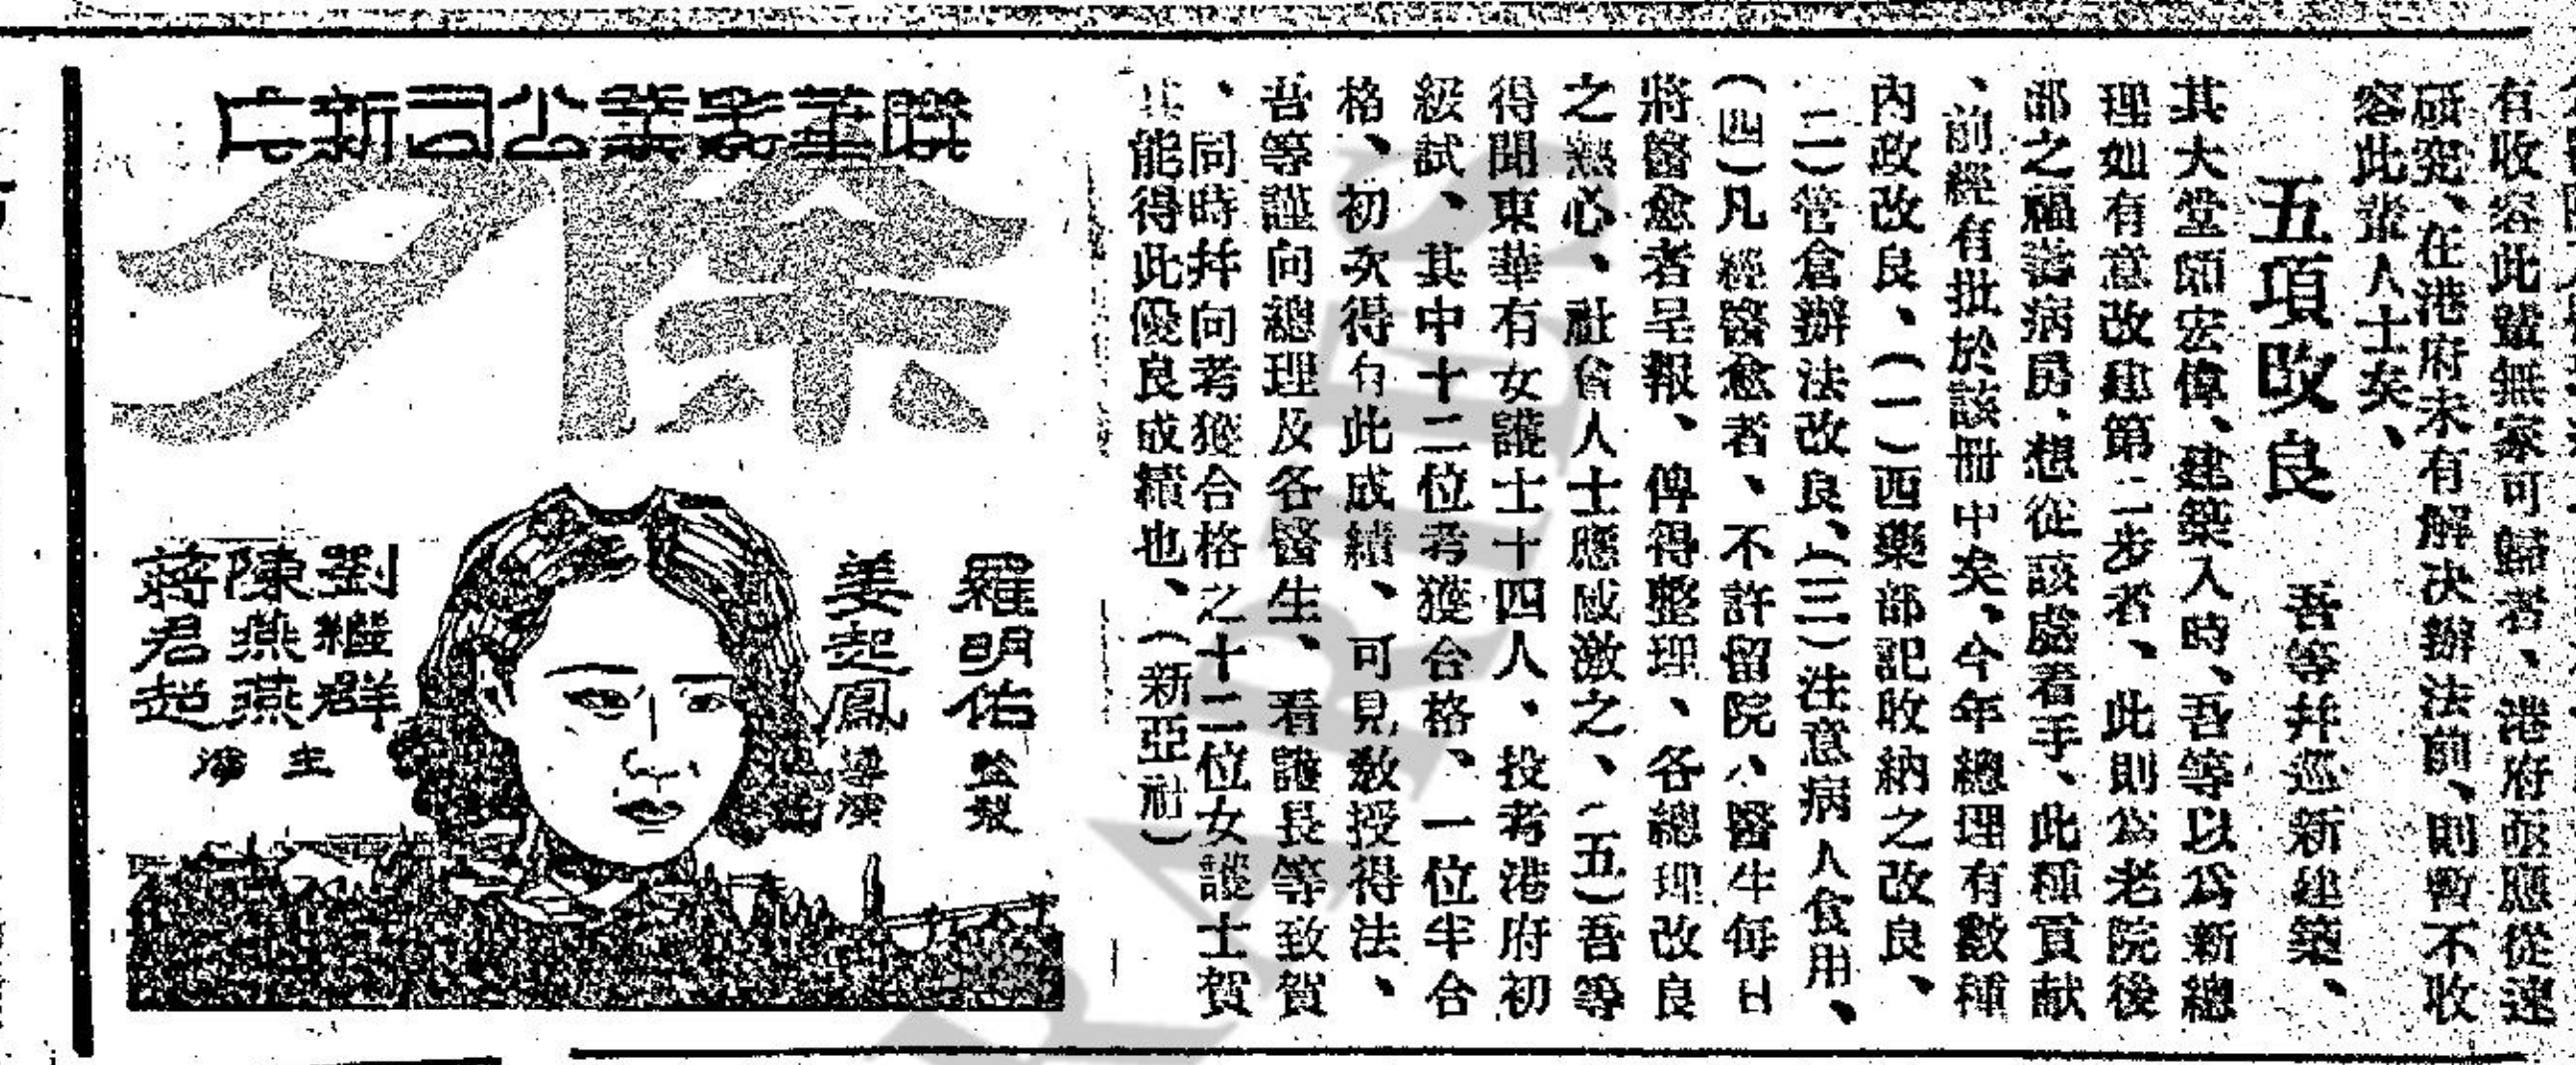 有收容此輩無家可歸者、港府亟應從速
研究、在港府未有解決辦法前、則暫不收
容此輩人士矣、
五項改良　吾等并巡新建築、
其大堂頗宏偉、建築入時、吾等以為新總
理如有意改建第二步者、此則為老院後
部之福壽病房、想從該處着手、此種貢献
、前經有批於該冊中矣、今年總理有數種
內政改良、(一)西藥部記收納之改良、
(二)管倉辦法改良、(三)注意病人食用、
(四)凡經醫愈者、不許留院、醫生每日
將醫愈者呈報、俾得整理、各總理改良
之熱心、社會人士應感激之、(五)吾等
得聞東華有女護士十四人、投考港府初
級試、其中十二位考獲合格、一位半合
格、初次得有此成績、可見教授得法、
吾等謹向總理及各醫生、看護長等致賀
、同時并向考獲合格之十二位女護士賀
其能得此優良成績也、(新亞社)
聯華影業公司新片
除夕
羅明佑 監製
姜起鳳 導演
劉繼群
陳燕燕
蔣君超
主演